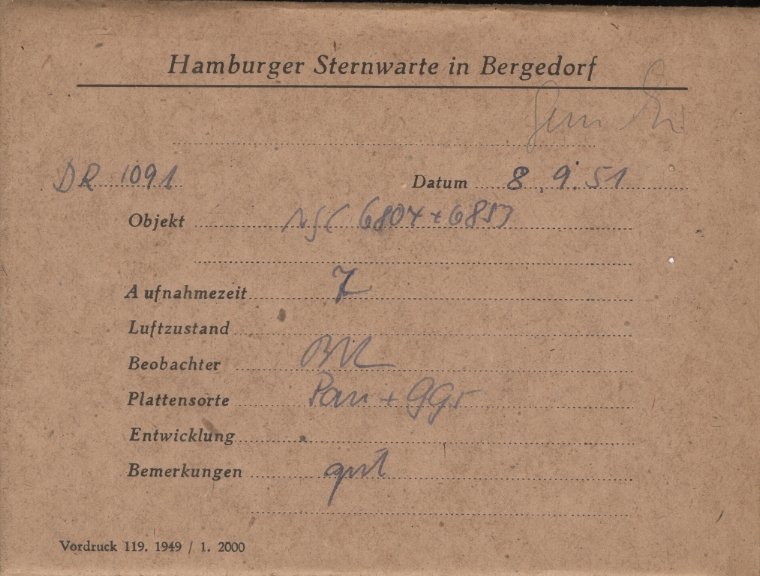 Hamburger Sternwarte in Bergedorf
DR 1091 Datum 8.9.51
Objekt NGC 6804 + 6853
Aufnahmezeit 7
Luftzustand
Beobachter
Plattensorte Pan + GG5
Entwicklung
Bemerkungen gut
Vordruck 119. 1949 / 1. 2000